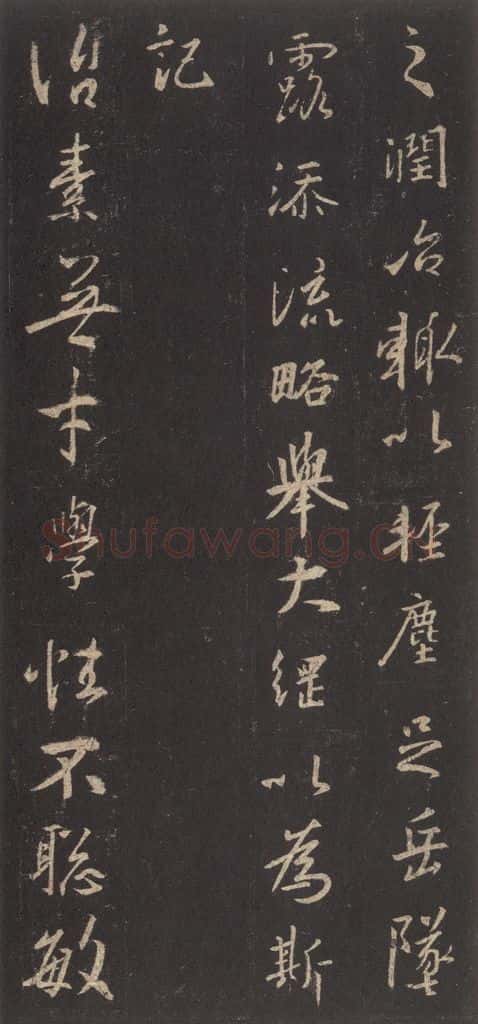 之潤冶輒以輕塵足岳墜
露添流略舉大綱以為斯
記
治素無才學性不聡敏
Shufawang.cn